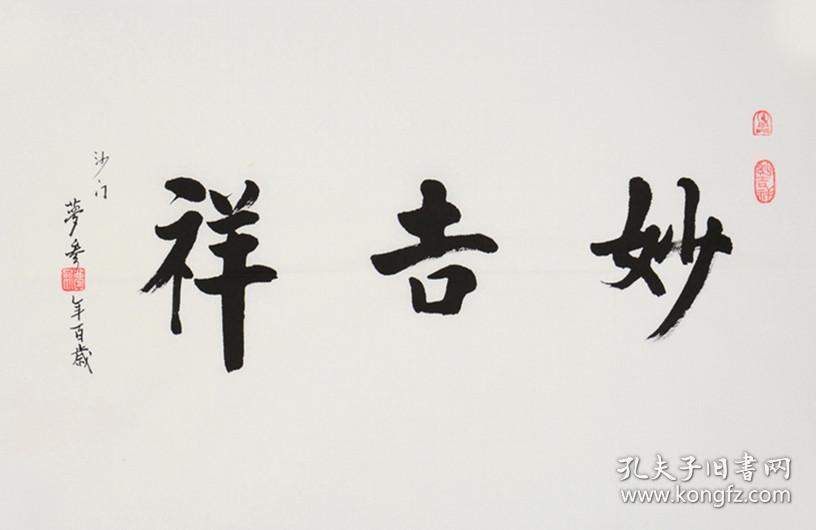 妙吉祥
沙门
夢参
年百歲
孔夫子旧书网
www.kongfz.com